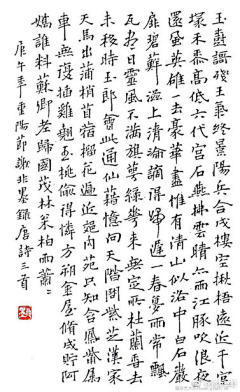 玉樹謌殘王氣終景陽兵合戍樓空楸梧遠近千官
塚禾黍高低六代宮石燕拂雲晴亦雨江豚吹浪夜
還風英雄一去豪華盡惟有青山似洛中白石巖
扉碧蘚滋上清淪謫得歸遲一春夢雨常飄
瓦盡日靈風不滿旗萼綠華來無定所杜蘭香去
未移時玉郎會此通仙籍憶向天階問紫芝漢家
天馬出蒲梢苜蓿榴花遍近郊內苑只知含鳳嘴屬
車無復插雞翹玉桃偷得憐方朔金屋脩成貯阿
嬌誰料蘇卿老歸國茂陵松柏雨蕭〻
庚午年重陽節謝非墨錄唐詩三首